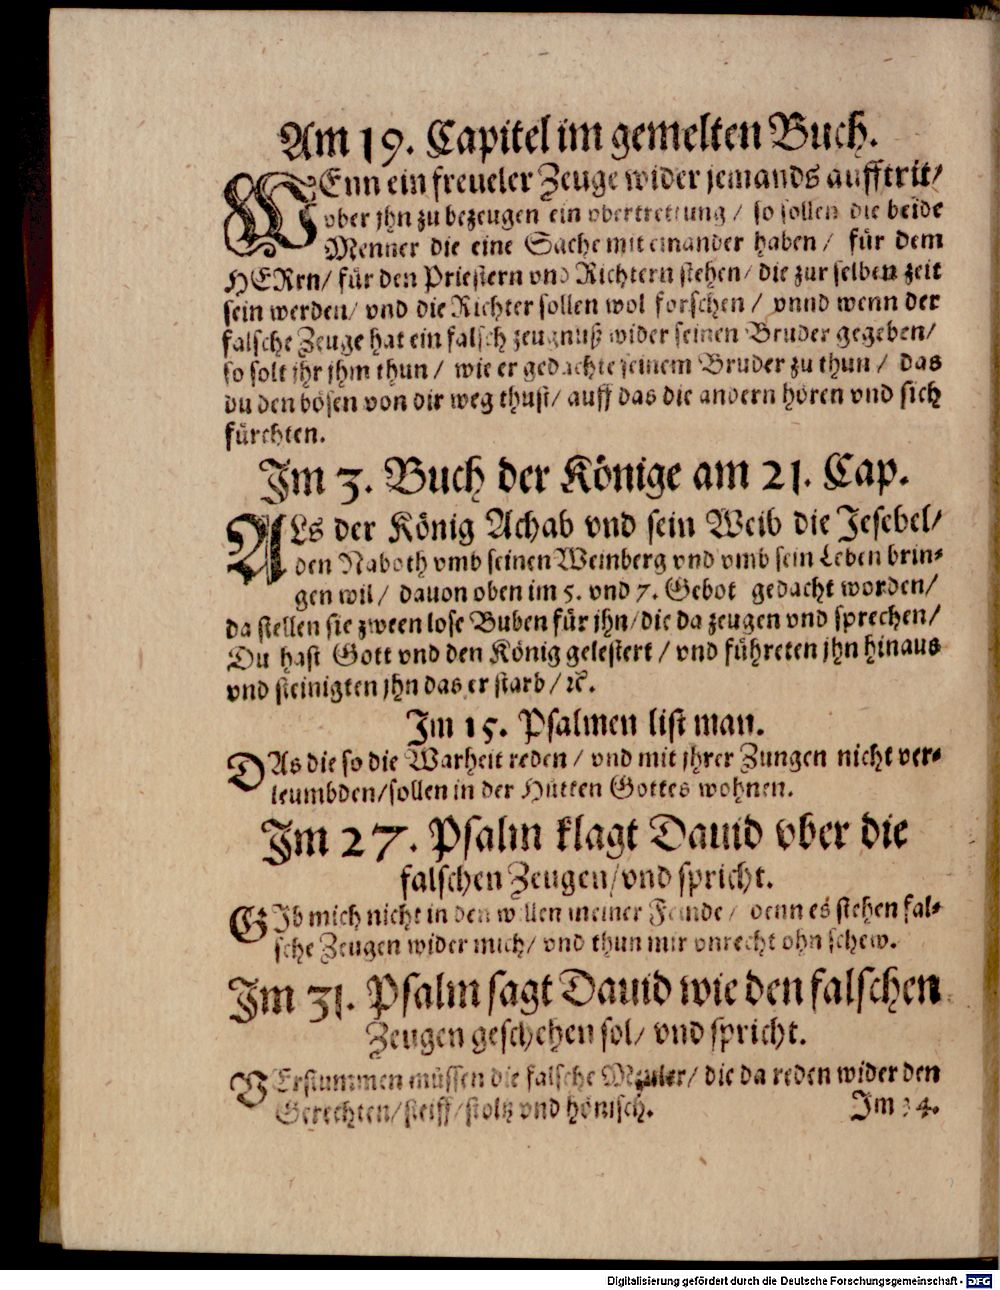 Am 19. Capitel im gemelten Buch.
WEnn ein freueler Zeuge wider jemands aufftrit/
vber jhn zu bezeugen ein vbertrettung / so sollen die beide
Menner die eine Sache mit einander haben / für dem
HERrn / für den Priestern vnd Richtern stehen / die zur selben zeit
sein werden / vnd die Richter sollen wol forschen / vnnd wenn der
falsche Zeuge hat ein falsch zeugnuß wider seinen Bruder gegeben /
so solt jhr jhm thun / wie er gedachte seinem Bruder zu thun / das
du den bösen von dir weg thust / auff das die andern hören vnd sich
fürchten.
Im 3. Buch der Könige am 21. Cap.
ALs der König Achab vnd sein Weib die Jesebel/
den Naboth vmb seinen Weinberg vnd vmb sein Leben brin-
gen wil / dauon oben im 5. vnd 7. Gebot gedacht worden /
da stellen sie zween lose Buben für jhn / die da zeugen vnd sprechen /
Du hast Gott vnd den König gelestert / vnd führeten jhn hinaus
vnd steinigten jhn das er starb / ꝛc.
Im 15. Psalmen list man.
DAs die so die Warheit reden / vnd mit jhrer Zungen nicht ver-
leumbden / sollen in der Hütten Gottes wohnen.
Im 27. Psalm klagt Dauid vber die
falschen Zeugen / vnd spricht.
GIb mich nicht in den willen meiner Feinde / denn es stehen fal-
sche Zeugen wider mich / vnd thun mir vnrecht ohn schew.
Im 31. Psalm sagt Dauid wie den falschen
Zeugen geschehen sol / vnd spricht.
VErstummen müssen die falsche Meuler / die da reden wider den
Gerechten / steiff / stoltz vnd hönisch.
Im 34.
Digitalisierung gefördert durch die Deutsche Forschungsgemeinschaft - DFG